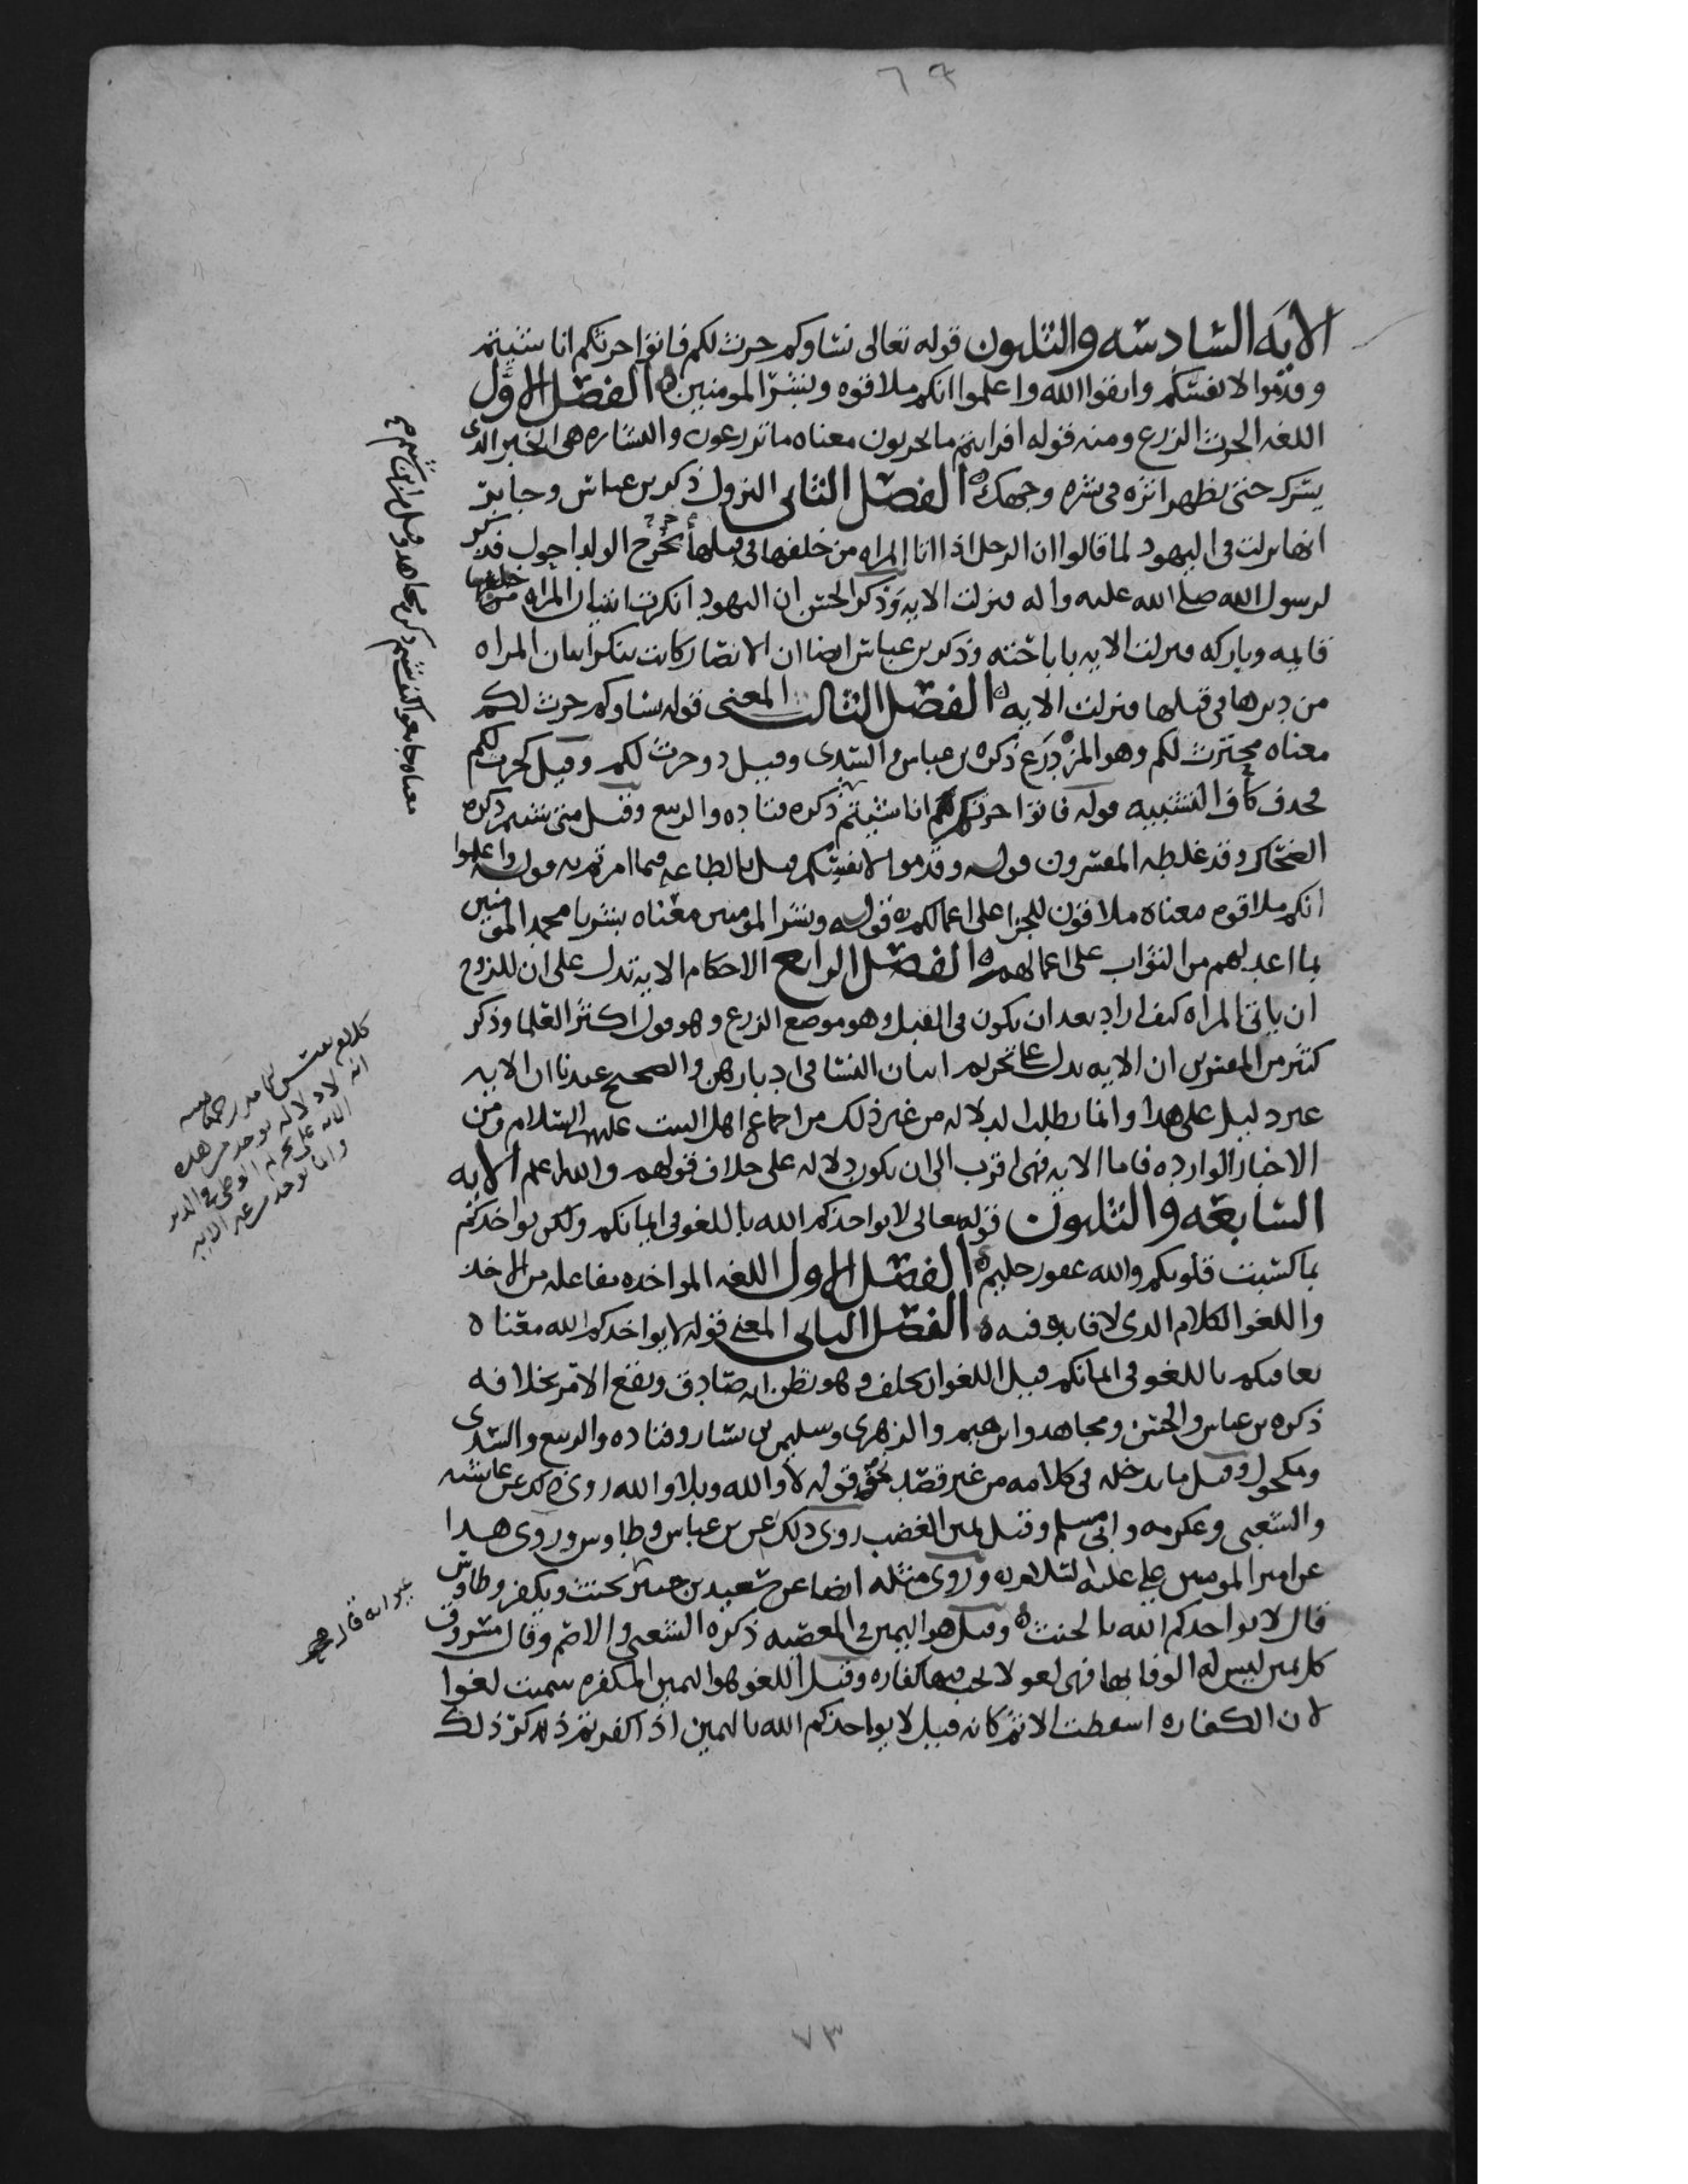 ٦٣
الايه السادسه والثلثون قوله تعالى نساوكم حرث لكم فاتوا حرثكم انا شيتم
وقدموا لانفسكم واتقوا الله واعلموا انكم ملاقوه وبشر المومنين ه الفصل الاول
اللغه الحرث الزرع ومنه قوله افرايتم ما تحرثون معناه ما تزرعون والبشاره هي الخبر الذي
يسرك حتى يظهر اثره في بشره وجهك ه الفصل الثاني النزول ذكر بن عباس وجابر
انها نزلت في اليهود لما قالوا ان الرجل اذا اتا المراه من خلفها في قبلها خرج الولد احول فذكر
لرسول الله صلى الله عليه واله فنزلت الايه وذكر الحسن ان اليهود انكرت اتيان المراه من خلفها
قايمه وباركه فنزلت الايه باباحته وذكر بن عباس ايضا ان الانصار كانت تنكر اتيان المراه
من دبرها في قبلها فنزلت الايه ه الفصل الثالث المعنى قوله نساوكم حرث لكم
معناه محترث لكم وهو المزدرع ذكره بن عباس والسدي وقيل ذو حرث لكم وقيل كحرث لكم
فحذف كاف التشبيه قوله فاتوا حرثكم انا شيتم ذكره قتاده والربيع وقيل متى شيتم ذكره
الضحاك وقد غلطه المفسرون قوله وقدموا لانفسكم قيل بالطاعه فيما امرتم به قوله واعلموا
انكم ملاقوه معناه ملاقون للجزا على اعمالكم ه قوله وبشر المومنين معناه بشر يا محمد المومنين
بما اعد لهم من الثواب على اعمالهم ه الفصل الرابع الاحكام الايه تدل على ان للزوج
ان ياتي المراه كيف اراد بعد ان يكون في القبل وهو موضع الزرع وهو قول اكثر العلما وذكر
كثير من المفسرين ان الايه تدل على تحريم اتيان النسا في ادبارهن والصحيح عندنا ان الايه
غير دليل على هذا وانما يطلب الدلاله من غير ذلك من اجماع اهل البيت عليهم السلام ومن
الاخبار الوارده فاما الايه فهي اقرب الى ان يكون دلاله على خلاف قولهم والله اعلم الايه
السابعه والثلثون قوله تعالى لا يواخذكم الله باللغو في ايمانكم ولكن يواخذكم
بما كسبت قلوبكم والله غفور حليم ه الفصل الاول اللغه المواخذه مفاعله من الاخذ
واللغو الكلام الذي لا فايده فيه ه الفصل الثاني المعنى قوله لا يواخذكم الله معناه
يعاقبكم باللغو في ايمانكم قيل اللغو ان يحلف وهو يظن انه صادق ويقع الامر بخلافه
ذكره بن عباس والحسن ومجاهد وابرهيم والزهري وسليمن بن يسار وقتاده والربيع والسدي
ومكحول وقيل ما يدخله في كلامه من غير قصد نحو قوله لا والله وبلا والله روى ذلك عن عايشه
والشعبي وعكرمه وابي مسلم وقيل يمين الغضب روى ذلك عن بن عباس وطاوس وروى هذا
عن امير المومنين علي عليه السلام وروى مثله ايضا عن سعيد بن جبير يحنث ويكفر وطاوس
قال لا يواخذكم الله بالحنث ه وقيل هو اليمين في المعصيه ذكره الشعبي والاصم وقال مسروق
كل يمين ليس له الوفا بها فهي لغو لا يجب فيها كفاره وقيل اللغو هو اليمين المكفره سميت لغوا
لان الكفاره اسقطت الاثم كانه قيل لا يواخذكم الله باليمين اذا كفرتم ذكر ذلك
انه لا دلاله توخذ من هذه
الايه على تحريم الوطي في الدبر
وانما توخذ من غير الايه
غير انه قال
٧٣